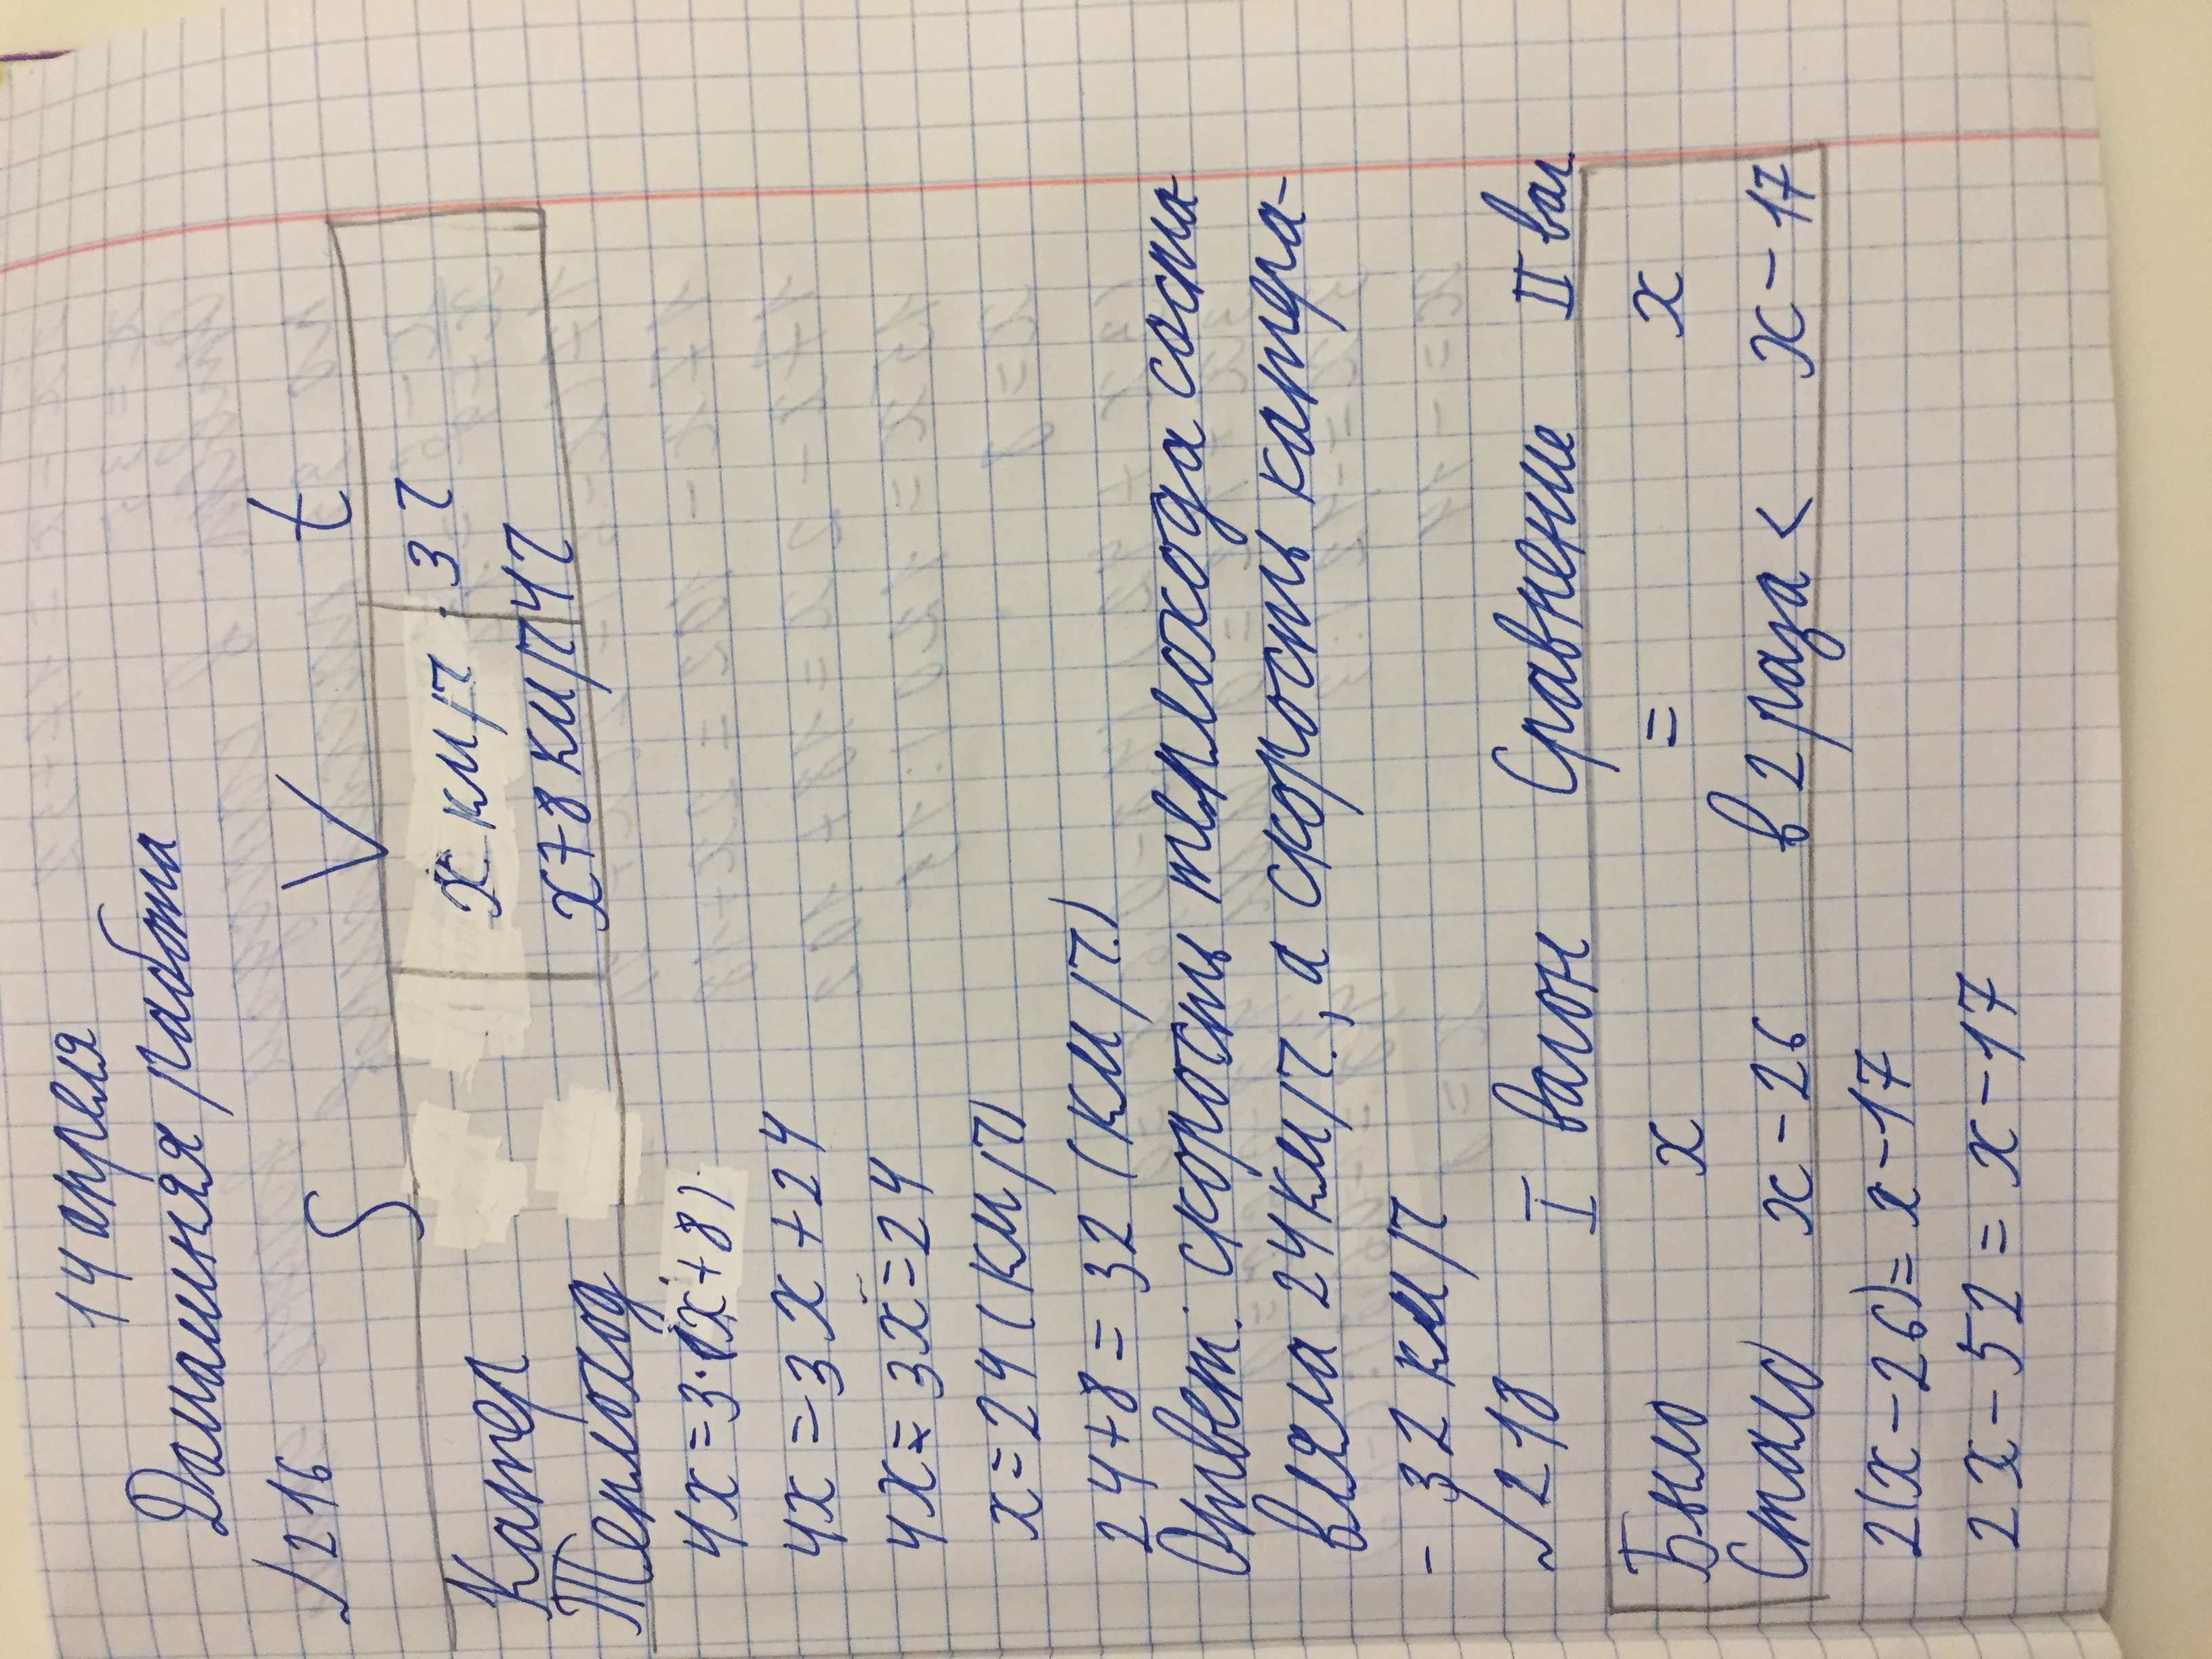 14 апреля
Домашняя работа
√216
S V t
Катер x км/ч . 3 ч
Теплоход x+8 км/ч 4 ч
4x=3·(x+8)
4x=3x+24
4x=3x=24
x=24(км/ч)
24+8=32(км/ч)
Ответ: скорость теплохода соста
вляла 24 км/ч, а скорость катера-
- 32 км/ч
√218 I вагон Сравнение II ваг.
Было x = x
Стало x-26 в 2 раза < x-17
2(x-26)=x-17
2x-52=x-17